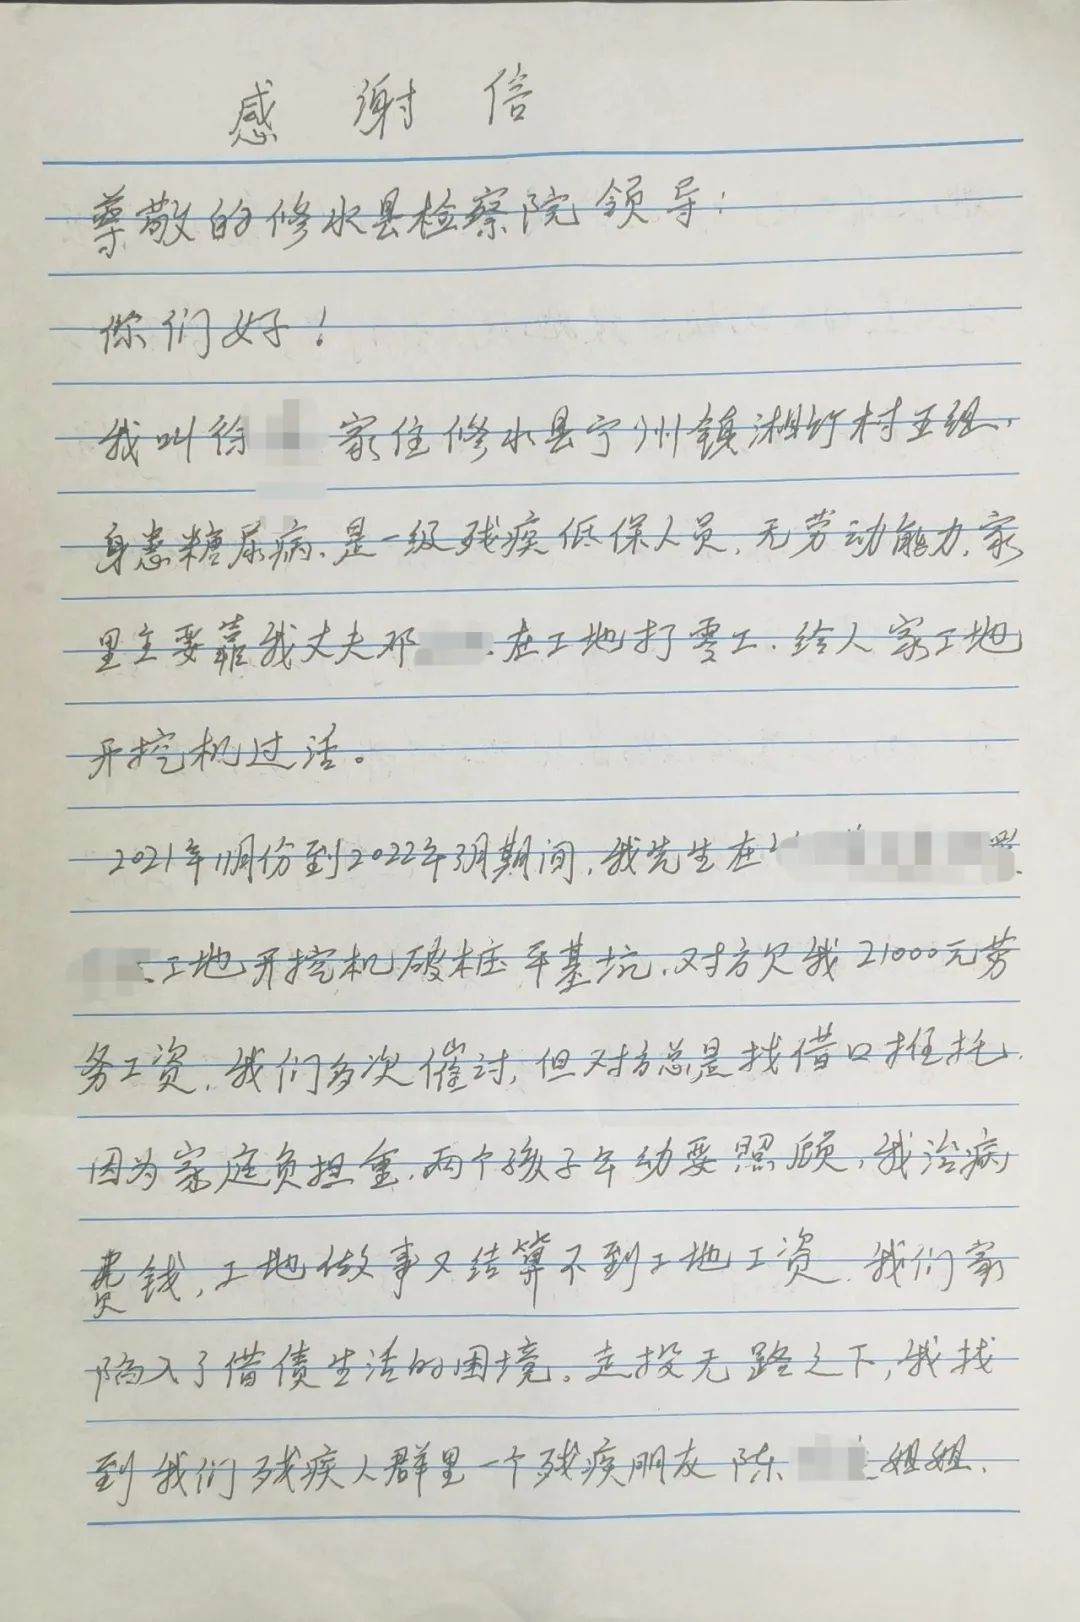 感谢信
尊敬的修水县检察院领导：
你们好！
我叫徐 家住修水县宁州镇湘竹村五组，
身患糖尿病、是一级残疾低保人员，无劳动能力，家
里主要靠我丈夫邓 、在工地打零工，给人家工地
开挖机过活。
2021年11月份到2022年3月期间，我先生在
、工地开挖机破桩平基坑，对方欠我21000元劳
务工资，我们多次催讨，但对方总是找借口推托，
因为家庭负担重，两个孩子年幼要照顾，我治病
费钱，工地做事又结算不到工地工资，我们家
陷入了借债生活的困境。走投无路之下，我找
到我们残疾人群里一个残疾朋友陈 姐姐、